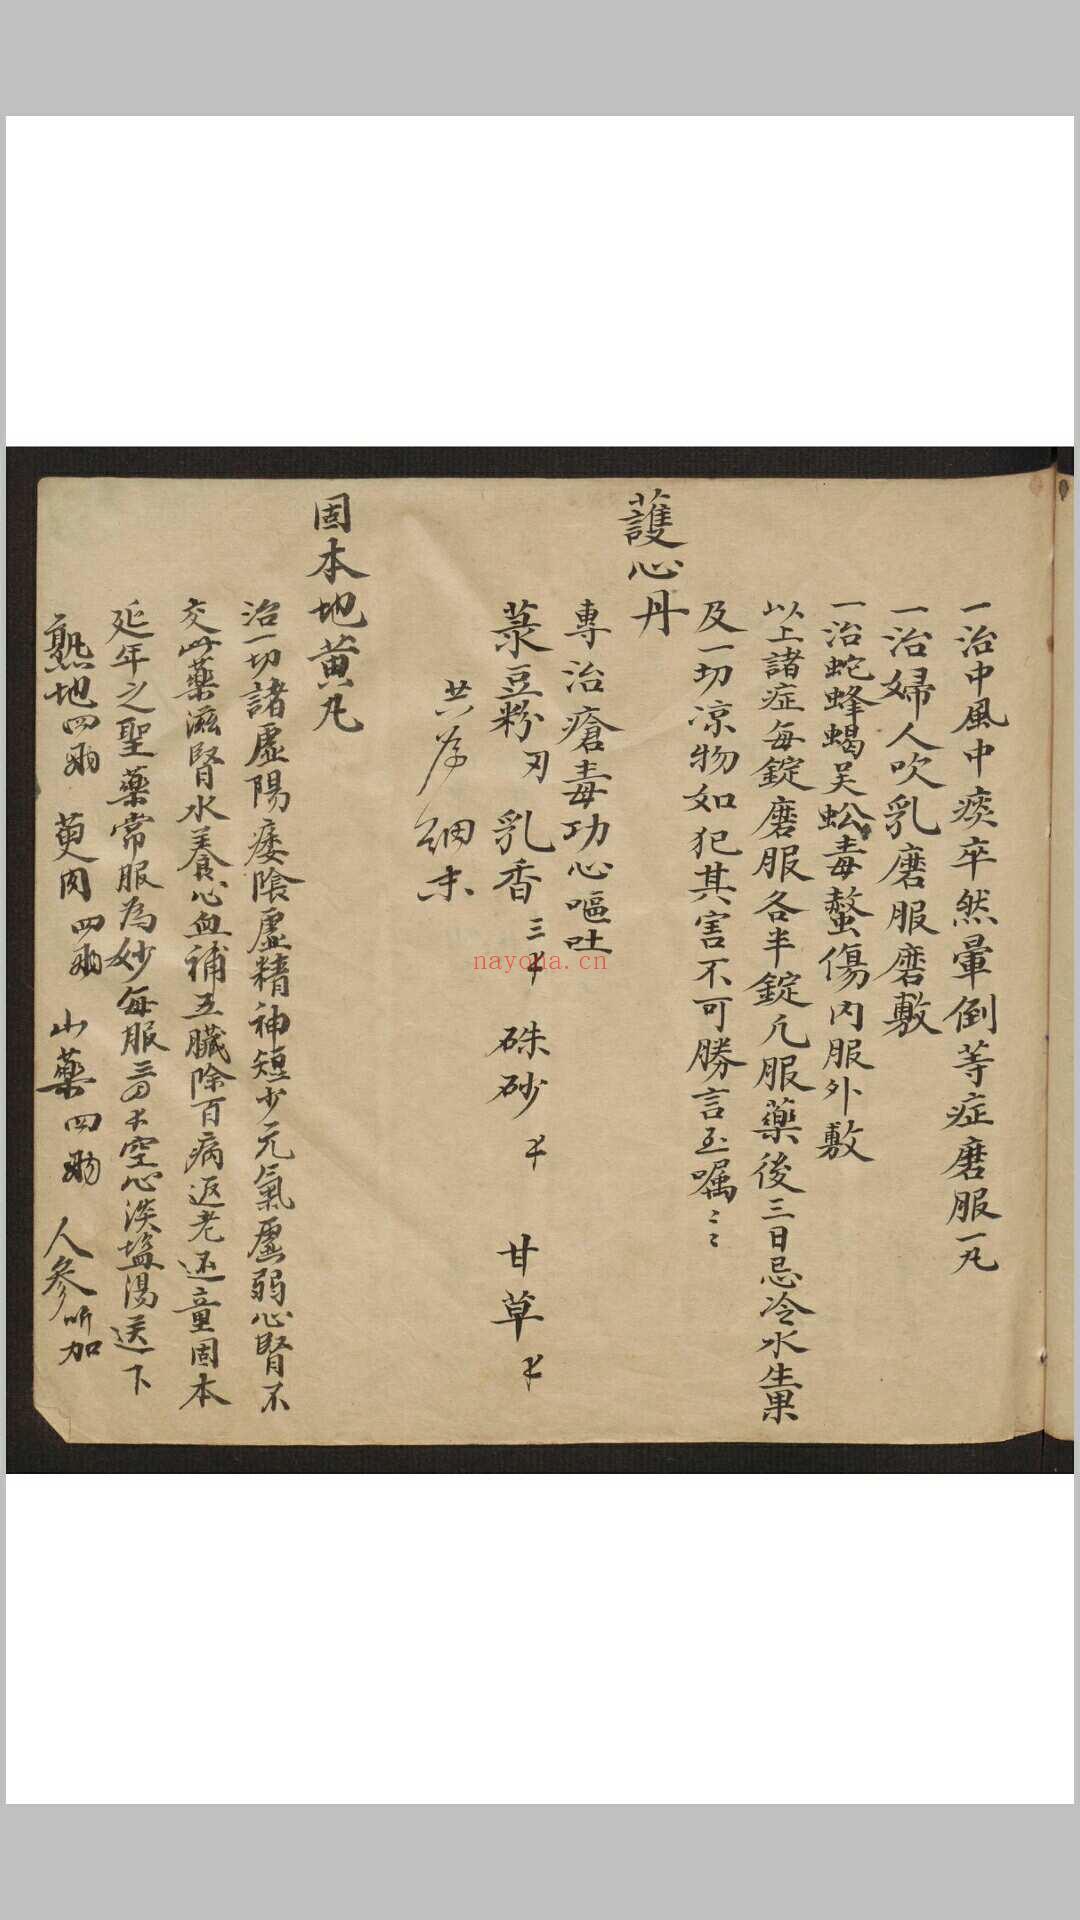 一治中風中痰卒然暈倒等症磨服一丸
一治婦人吹乳磨服磨敷
一治蛇蜂蝎吴蚣毒螫傷内服外敷
以上諸症每錠磨服各半錠凢服藥後三日忌冷水生菓
及一切凉物如犯其害不可勝言至嘱〻〻
護心丹
專治瘡毒功心嘔吐
菉豆粉 乳香三 硃砂 甘草
共為細末
固本地黄丸
治一切諸虛陽痿陰虛精神短少元氣虛弱心腎不
交此藥滋腎水養心血補五臟除百病返老还童固本
延年之聖藥常服為妙每服三四空心淡塩湯送下
熟地四兩 萸肉四兩 山藥四兩 人參听加
nayona.cn